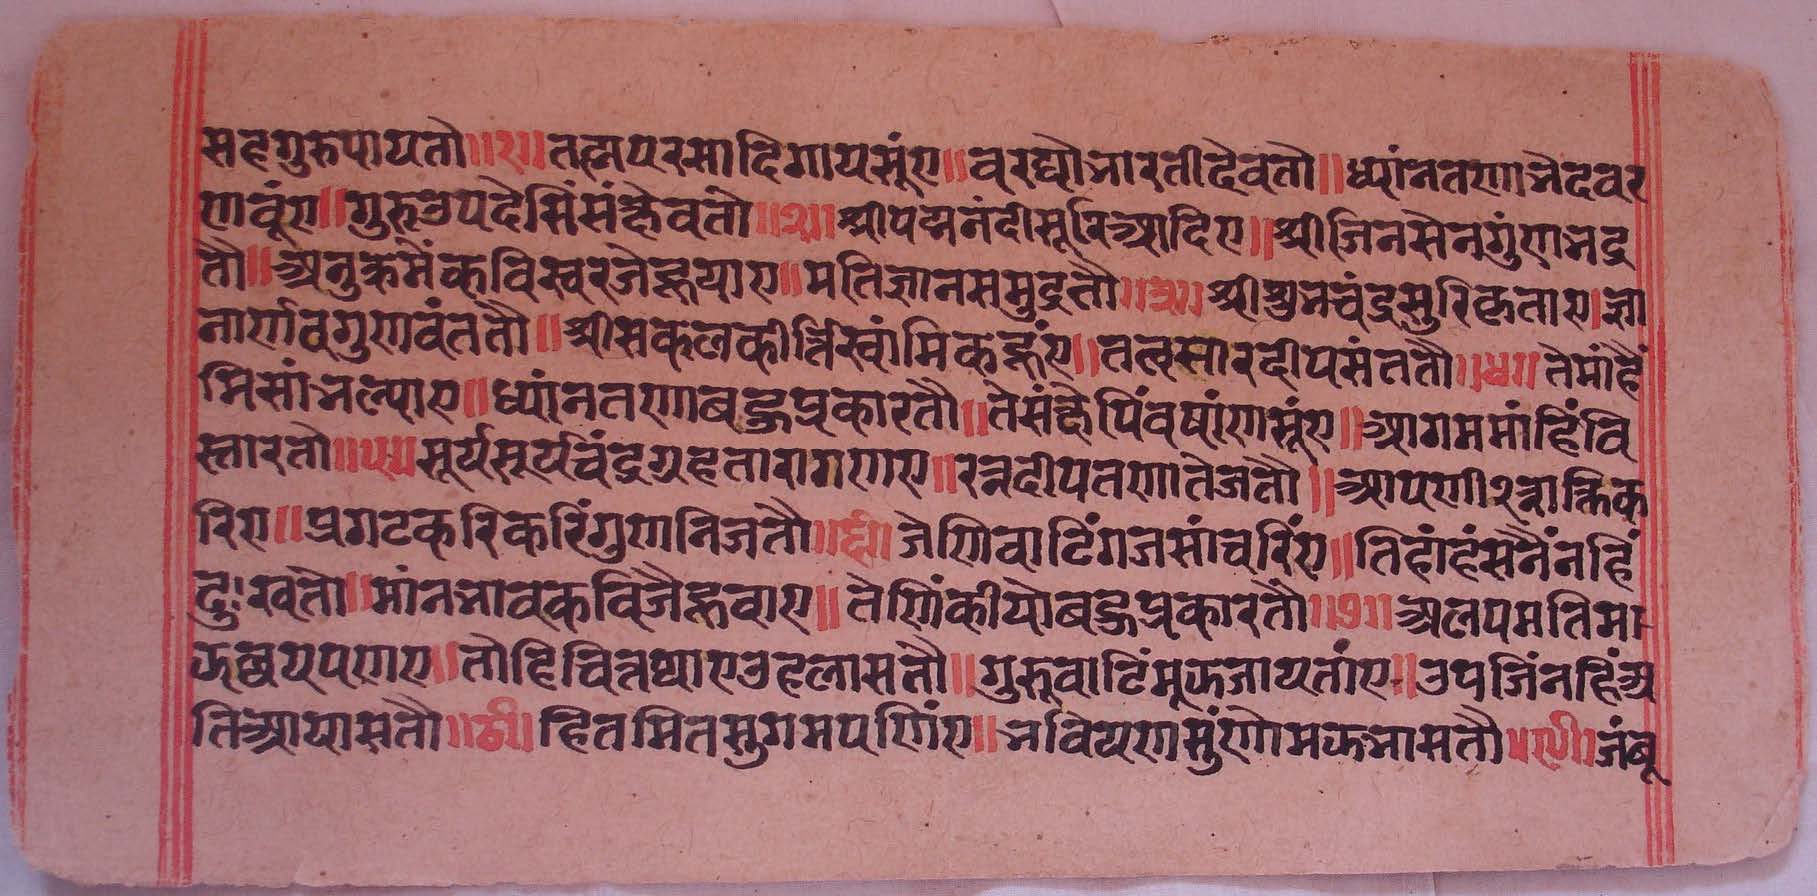 सहगुरुपायतौ॥१॥तह्मपरसादिगायसूंए॥वरद्यौभारतीदेवतौ॥ध्यांनतणानेदवर
णवूंए॥गुरुउपदेसिंसंक्षेवतौ॥२॥श्रीपद्मनंदीसूरिआदिए॥श्रीजिनसेनगुंणभद्र
तौ॥अनुक्रमेंकविस्वरजेह्नयाए॥मतिज्ञानसमुद्रतौ॥३॥श्रीशुभचंद्रसुरिकृताए।ज्ञा
नार्णवगुणवंततौ॥श्रीसकलकीर्त्तिस्वांमिकह्नंए॥तत्वसारदीपसंततौ॥४॥तेमांहैं
भिसांभल्याए॥ध्यांनतणाबहुप्रकारतौ॥तेसंक्षेपिंवषांणसूंए॥आगममांहिंवि
स्तारतौ॥५॥सूर्यसूर्यचंद्रग्रहतारागणए॥रत्नदीपतणातेजतौ॥आपणीशक्तिक
रिए॥प्रगटकरिकरिंगुणनिजतौ॥६॥जेणिवाटिंगजसांचरिंए॥तिहांहंसनेंनहिं
दुःखतौ॥मांनभावकविजेह्नवाए॥तेणिंकीयोबहुप्रकारतौ॥७॥अलपमतिमा
झछयपणए॥तोहिचित्तथ्याएउहलासतौ॥गुरुवाटिंमूझजायतांए॥उपजिंनहिंअ
तिआयासतौ॥८॥हितमितसुगमपणिंए॥भवियणसुंणोमझभासतौ॥९॥जंबू